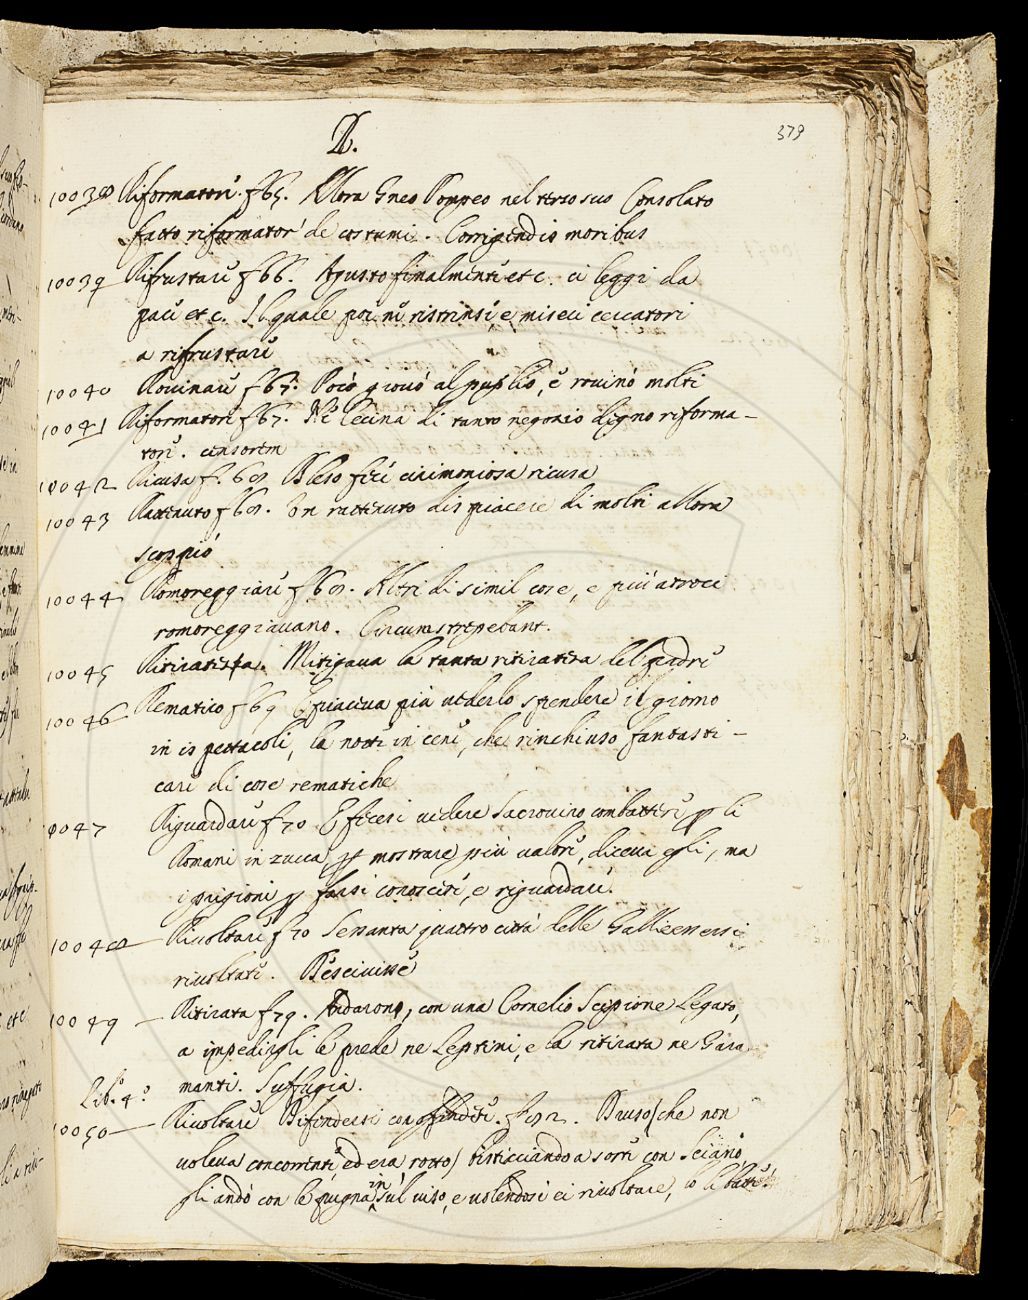 R.
379
10038 Riformatori. f 65. Allora Gneo Pompeo nel terzo suo Consolato
fatto riformator' de costumi. Corrigendis moribus
10039 Rifrustare f 66. Agusto finalmente etc. ci leggi da
pace etc. Il quale poi ne ristrinse, e mise ci cercatori
a rifrustare
10040 Rouinare f 67. Poco giouò al puplio, e rouinò molti
10041 Riformatore f 67. Ne lecina di tanto negozio degno riforma-
tore. censorem
10042 Ricusa f. 68 Bleso fece cirimoniosa ricusa
10043 Rattenuto f 68. Un rattenuto dispiacere di molti allora
scoppiò
10044 Romoreggiare f 68. Altri di simil cose, e più atroci
romoreggiauano. Circumstrepebant.
10045 Ritiratezza. Mitigaua la tanta ritiratezza del padre
10046 Rematico f 69 E piaceua più uederlo spendere il giorno
in ispettacoli, la notte in cene, che rinchiuso fantasti-
care di cose rematiche
10047 Riguardare f 70 E fecesi uedere Sacrouiro combattere p li
Romani in zucca, p mostrare più ualore, diceua egli, ma
i prigioni p farsi conoscere, e riguardare.
10048 Riuoltare f 70 Sessanta quattro città delle Gallie essersi
riuoltate. Desciuisse
10049 Ritirata f 79. Andarono, con una Cornelio Scipione Legato,
a impedirgli le prede ne Leptini, e la ritirata ne Gara
manti. Suffugia.
Lib.o 4.o
10050 Riuoltare Difendersi con offendere. f 92. Druso/ che non
uoleua concorrente ed era rotto/ bisticciando a sorte con Seiano,
gli andò con le pugna in sul uiso, e uolendosi ei riuoltare, lo batté